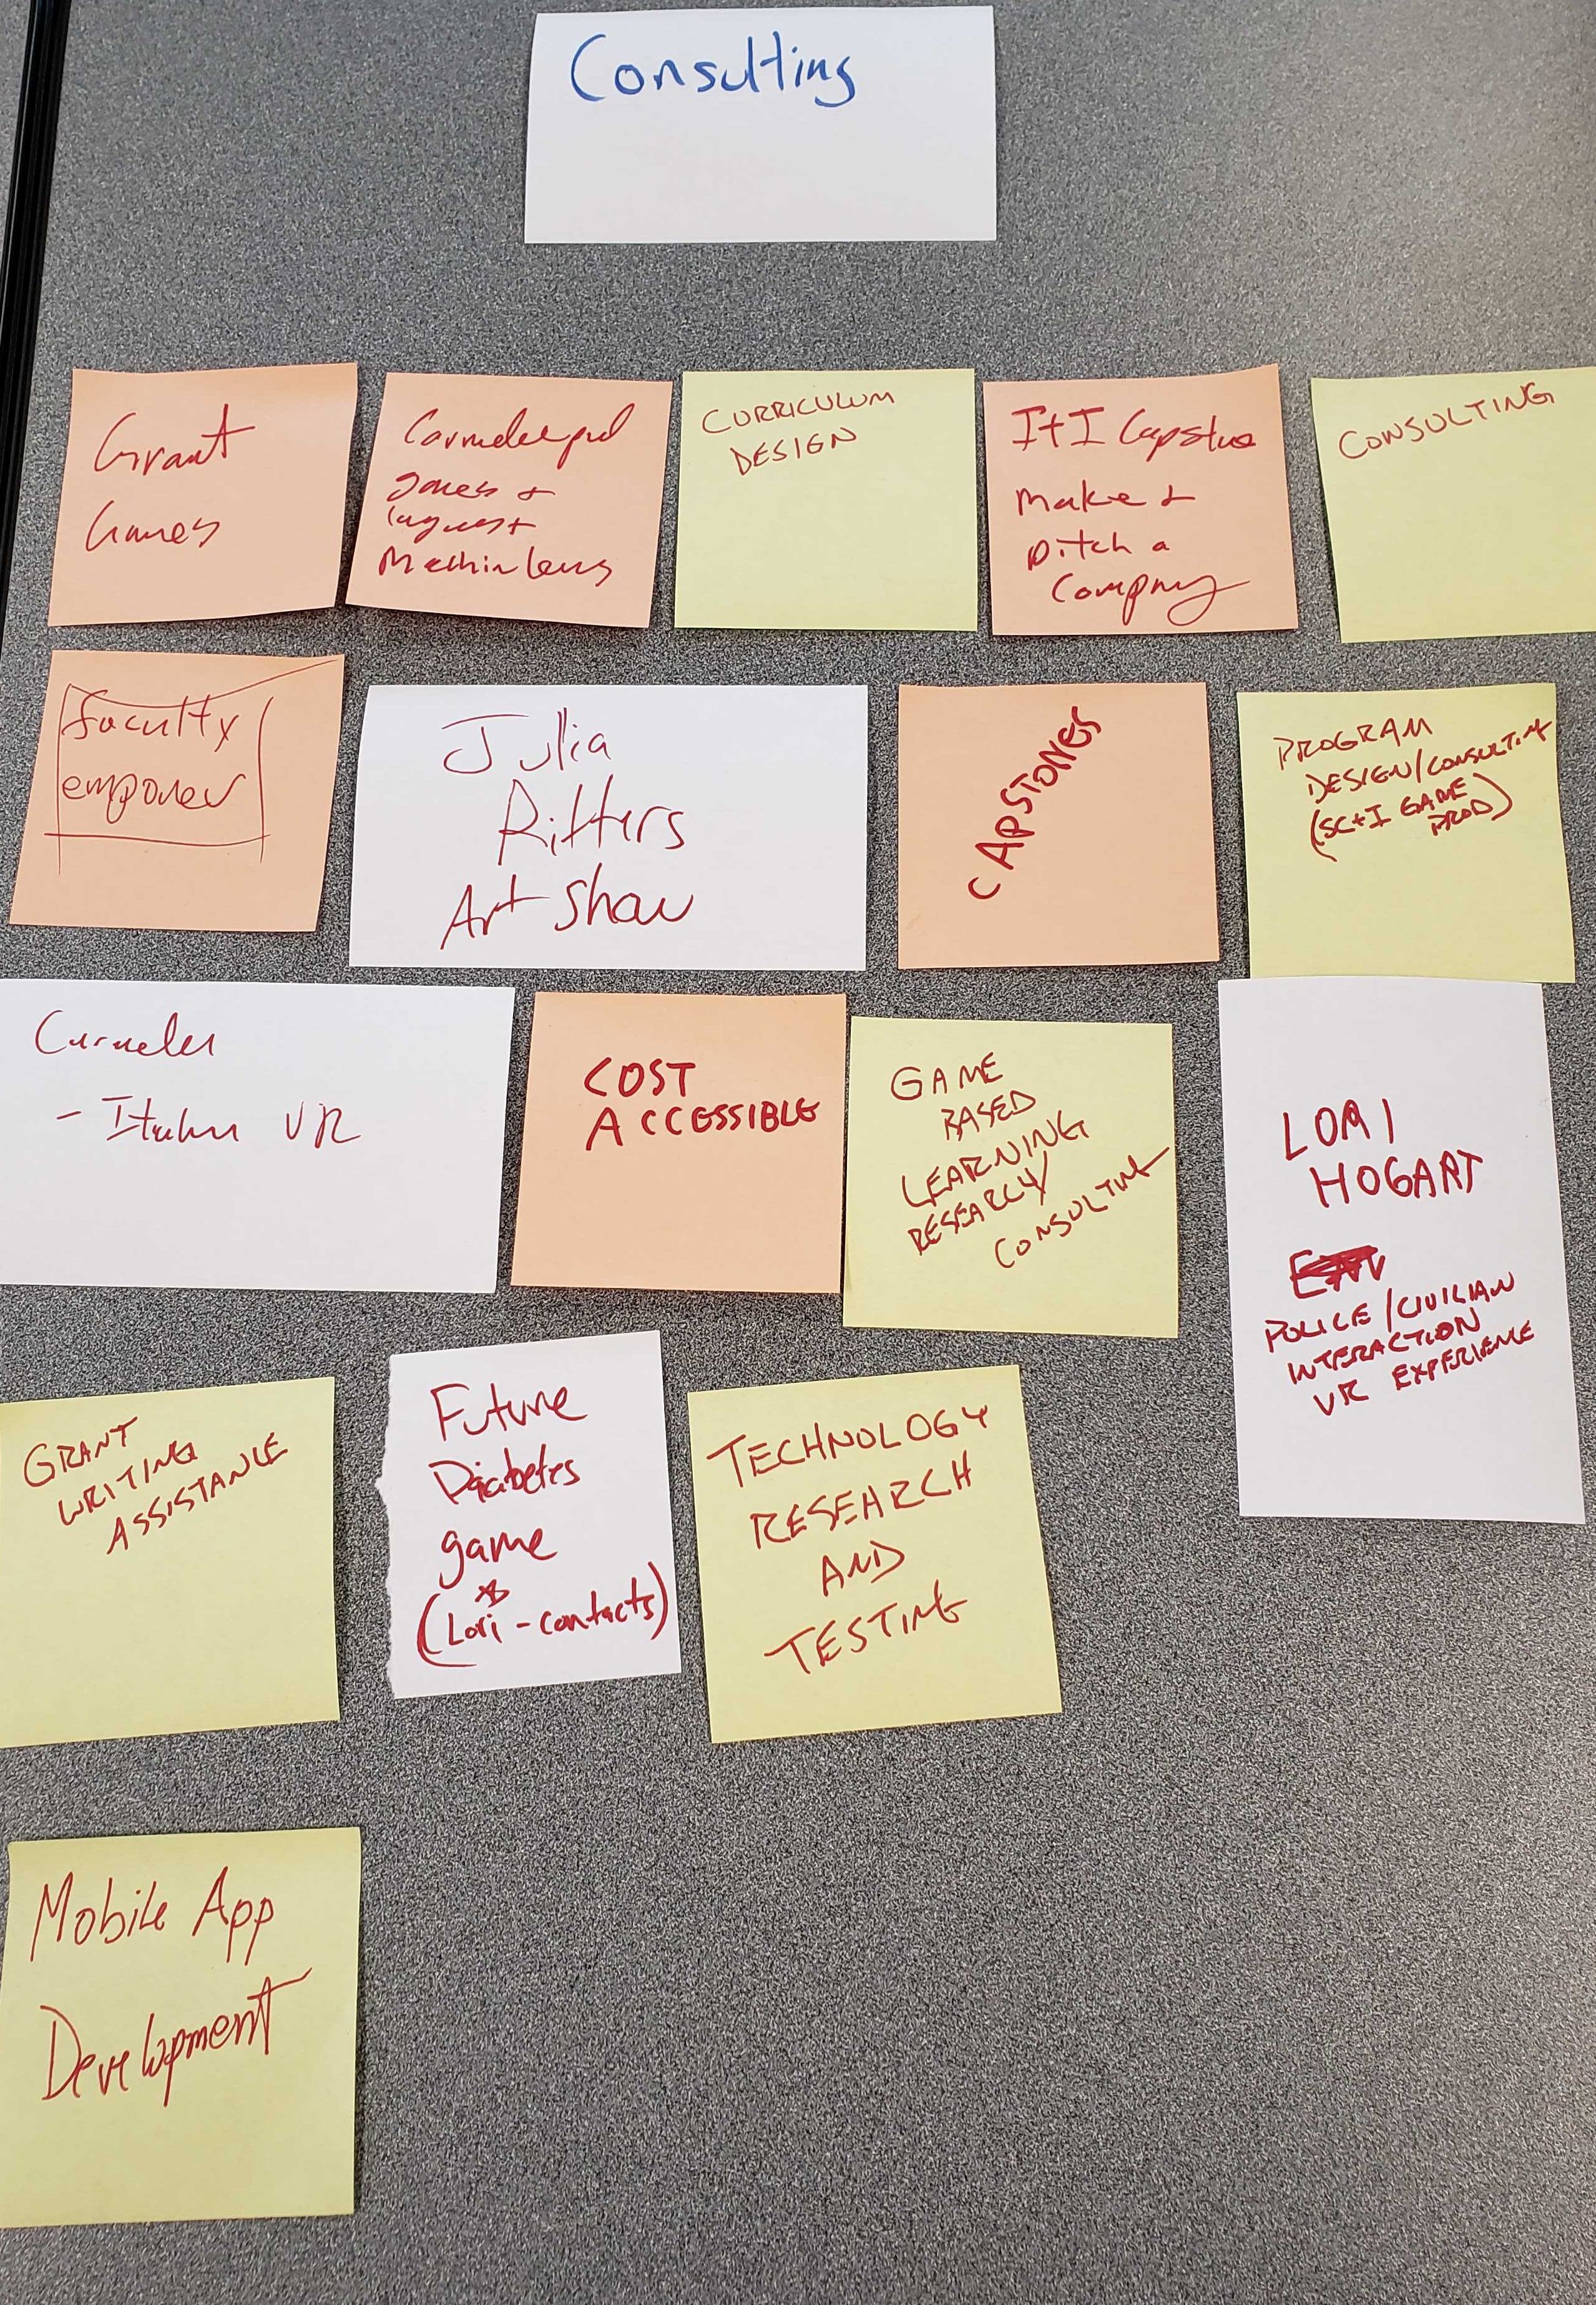 Consulting
Grant
Games
Games +
+
CURRICULUM
DESIGN
I+I Capstone
Make +
Pitch a
Company
CONSULTING
faculty
empower
Julia
Ritters
Art Show
CAPSTONES
PROGRAM
DESIGN/CONSULTING
(SC+I GAME
PROD)
- VR
COST
ACCESSIBLE
GAME
BASED
LEARNING
RESEARCH/
CONSULTING
LORI
HOGART
POLICE/CIVILIAN
INTERACTION
VR EXPERIENCE
GRANT
WRITING
ASSISTANCE
Future
Diabetes
game
(Lori - contacts)
TECHNOLOGY
RESEARCH
AND
TESTING
Mobile App
Development